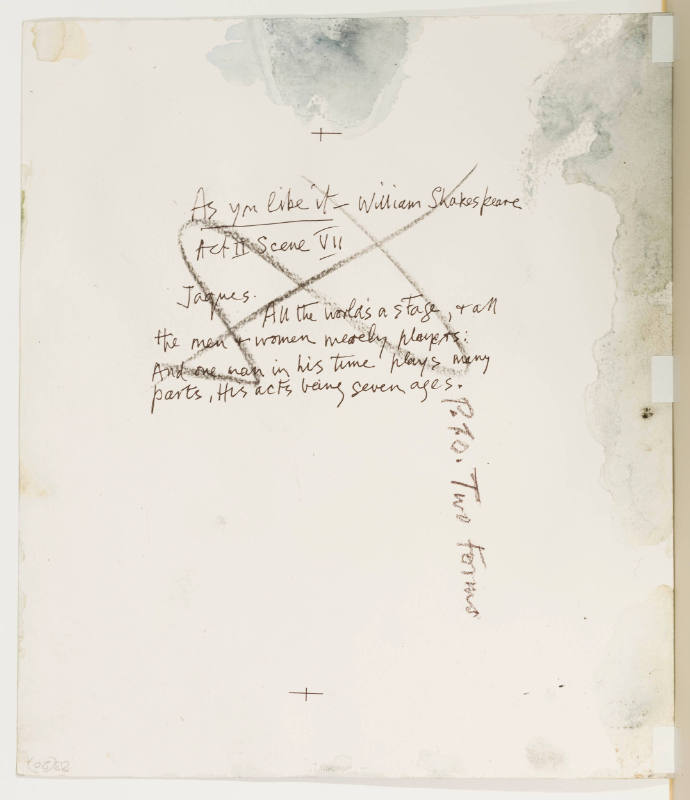 As you like it – William Shakespeare
Act II Scene VII
Jaques.
All the world's a stage, + all
the men + women merely players:
And one man in his time plays many
parts, His acts being seven ages.
P.t.o. Two forms